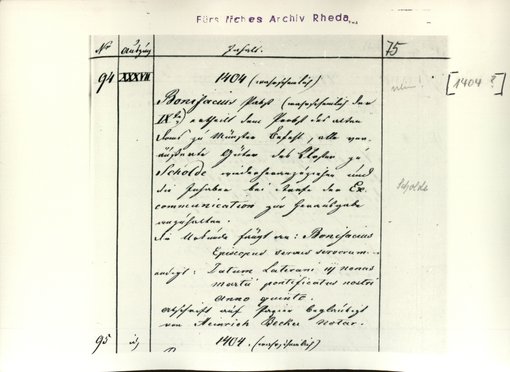 Fürstliches Archiv Rheda
No Auszug Inhalt. 75
94 XXXVII 1404 (wahrscheinlich)
[1404?]
Bonifacius Pabst (wahrscheinlich der
IXte) ertheilt dem Probst des alten
Doms zu Münster Befehl, alle ver-
äußerte Güter des Kloster zu
Scholde wiederheranzuziehen und
Scholde
die Inhaber bei Strafe der Ex-
communication zur Herausgabe
anzuhalten.
Die Urkunde fängt an: Bonifacius
Episcopus servus servorum
endigt: Datum Laterani iij nonas
martii pontificatus nostri
anno quinto.
Abschrift auf Papier beglaubigt
von Heinrich Becker Notar.
95 id 1404. (wahrscheinlich)